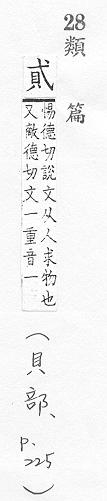 28類篇
貣
惕德切說文从人求物也
又敵德切文一重音一
(貝部、p.225)